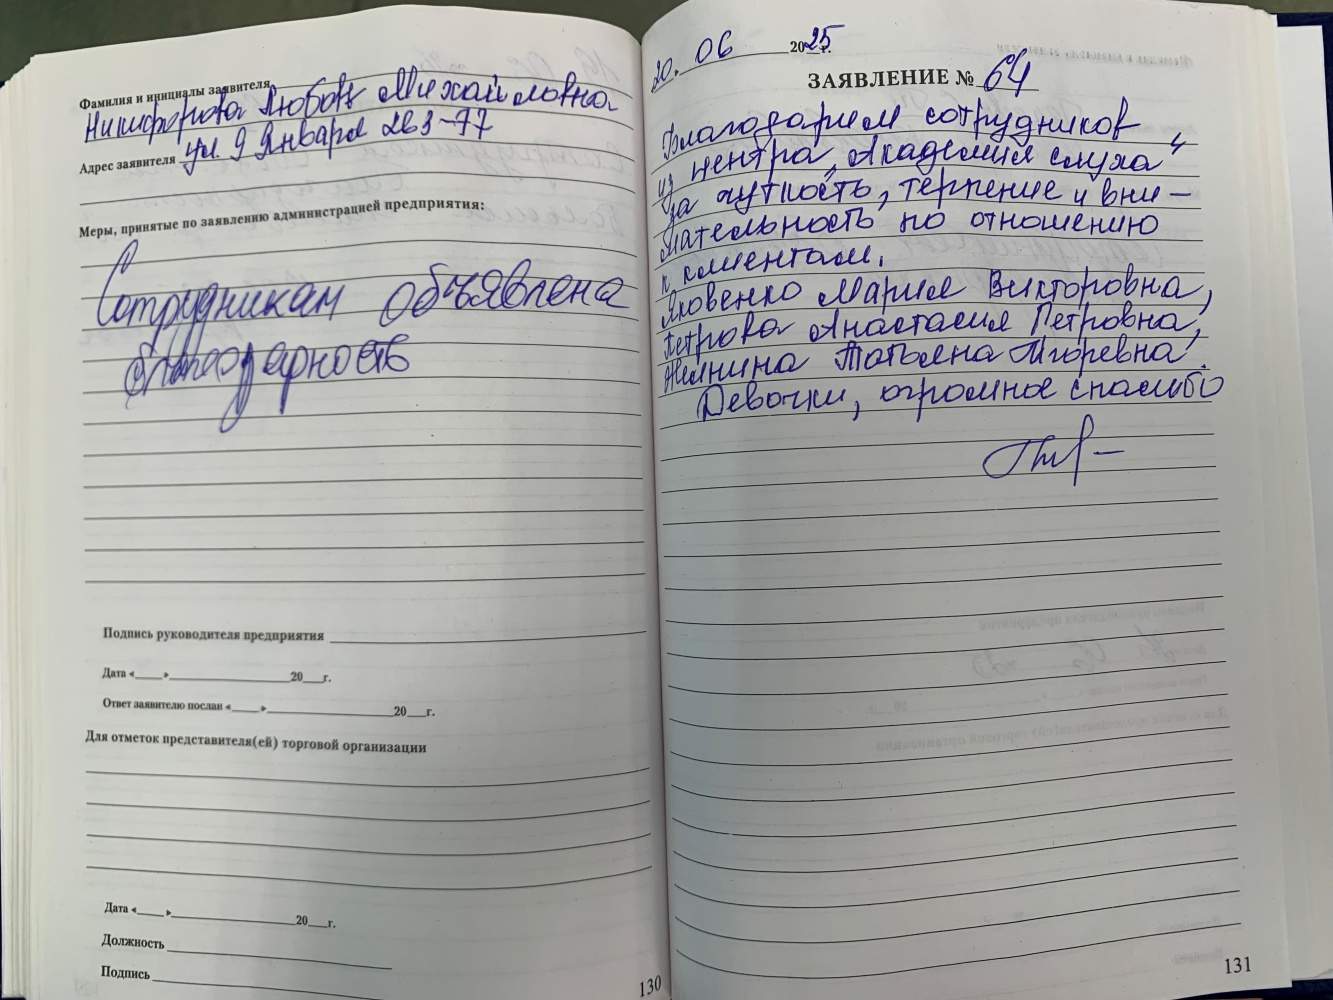 Фамилия и инициалы заявителя
Никифорова Любовь Михайловна
Адрес заявителя ул. 9 Января 263-77
Меры, принятые по заявлению администрацией предприятия:
Сотрудникам объявлена
благодарность
Подпись руководителя предприятия
Дата «____»____________20___г.
Ответ заявителю послан «____»____________20___г.
Для отметок представителя(ей) торговой организации
Дата «____»____________20___г.
Должность
Подпись
130
20. 06 2025 г.
ЗАЯВЛЕНИЕ № 64
Благодарим сотрудников
из центра „Академия слуха"
за чуткость, терпение и вни-
мательность по отношению
к клиентам.
Яковенко Мария Викторовна,
Петрова Анастасия Петровна,
Татьяна Игоревна.
Девочки, огромное спасибо
131